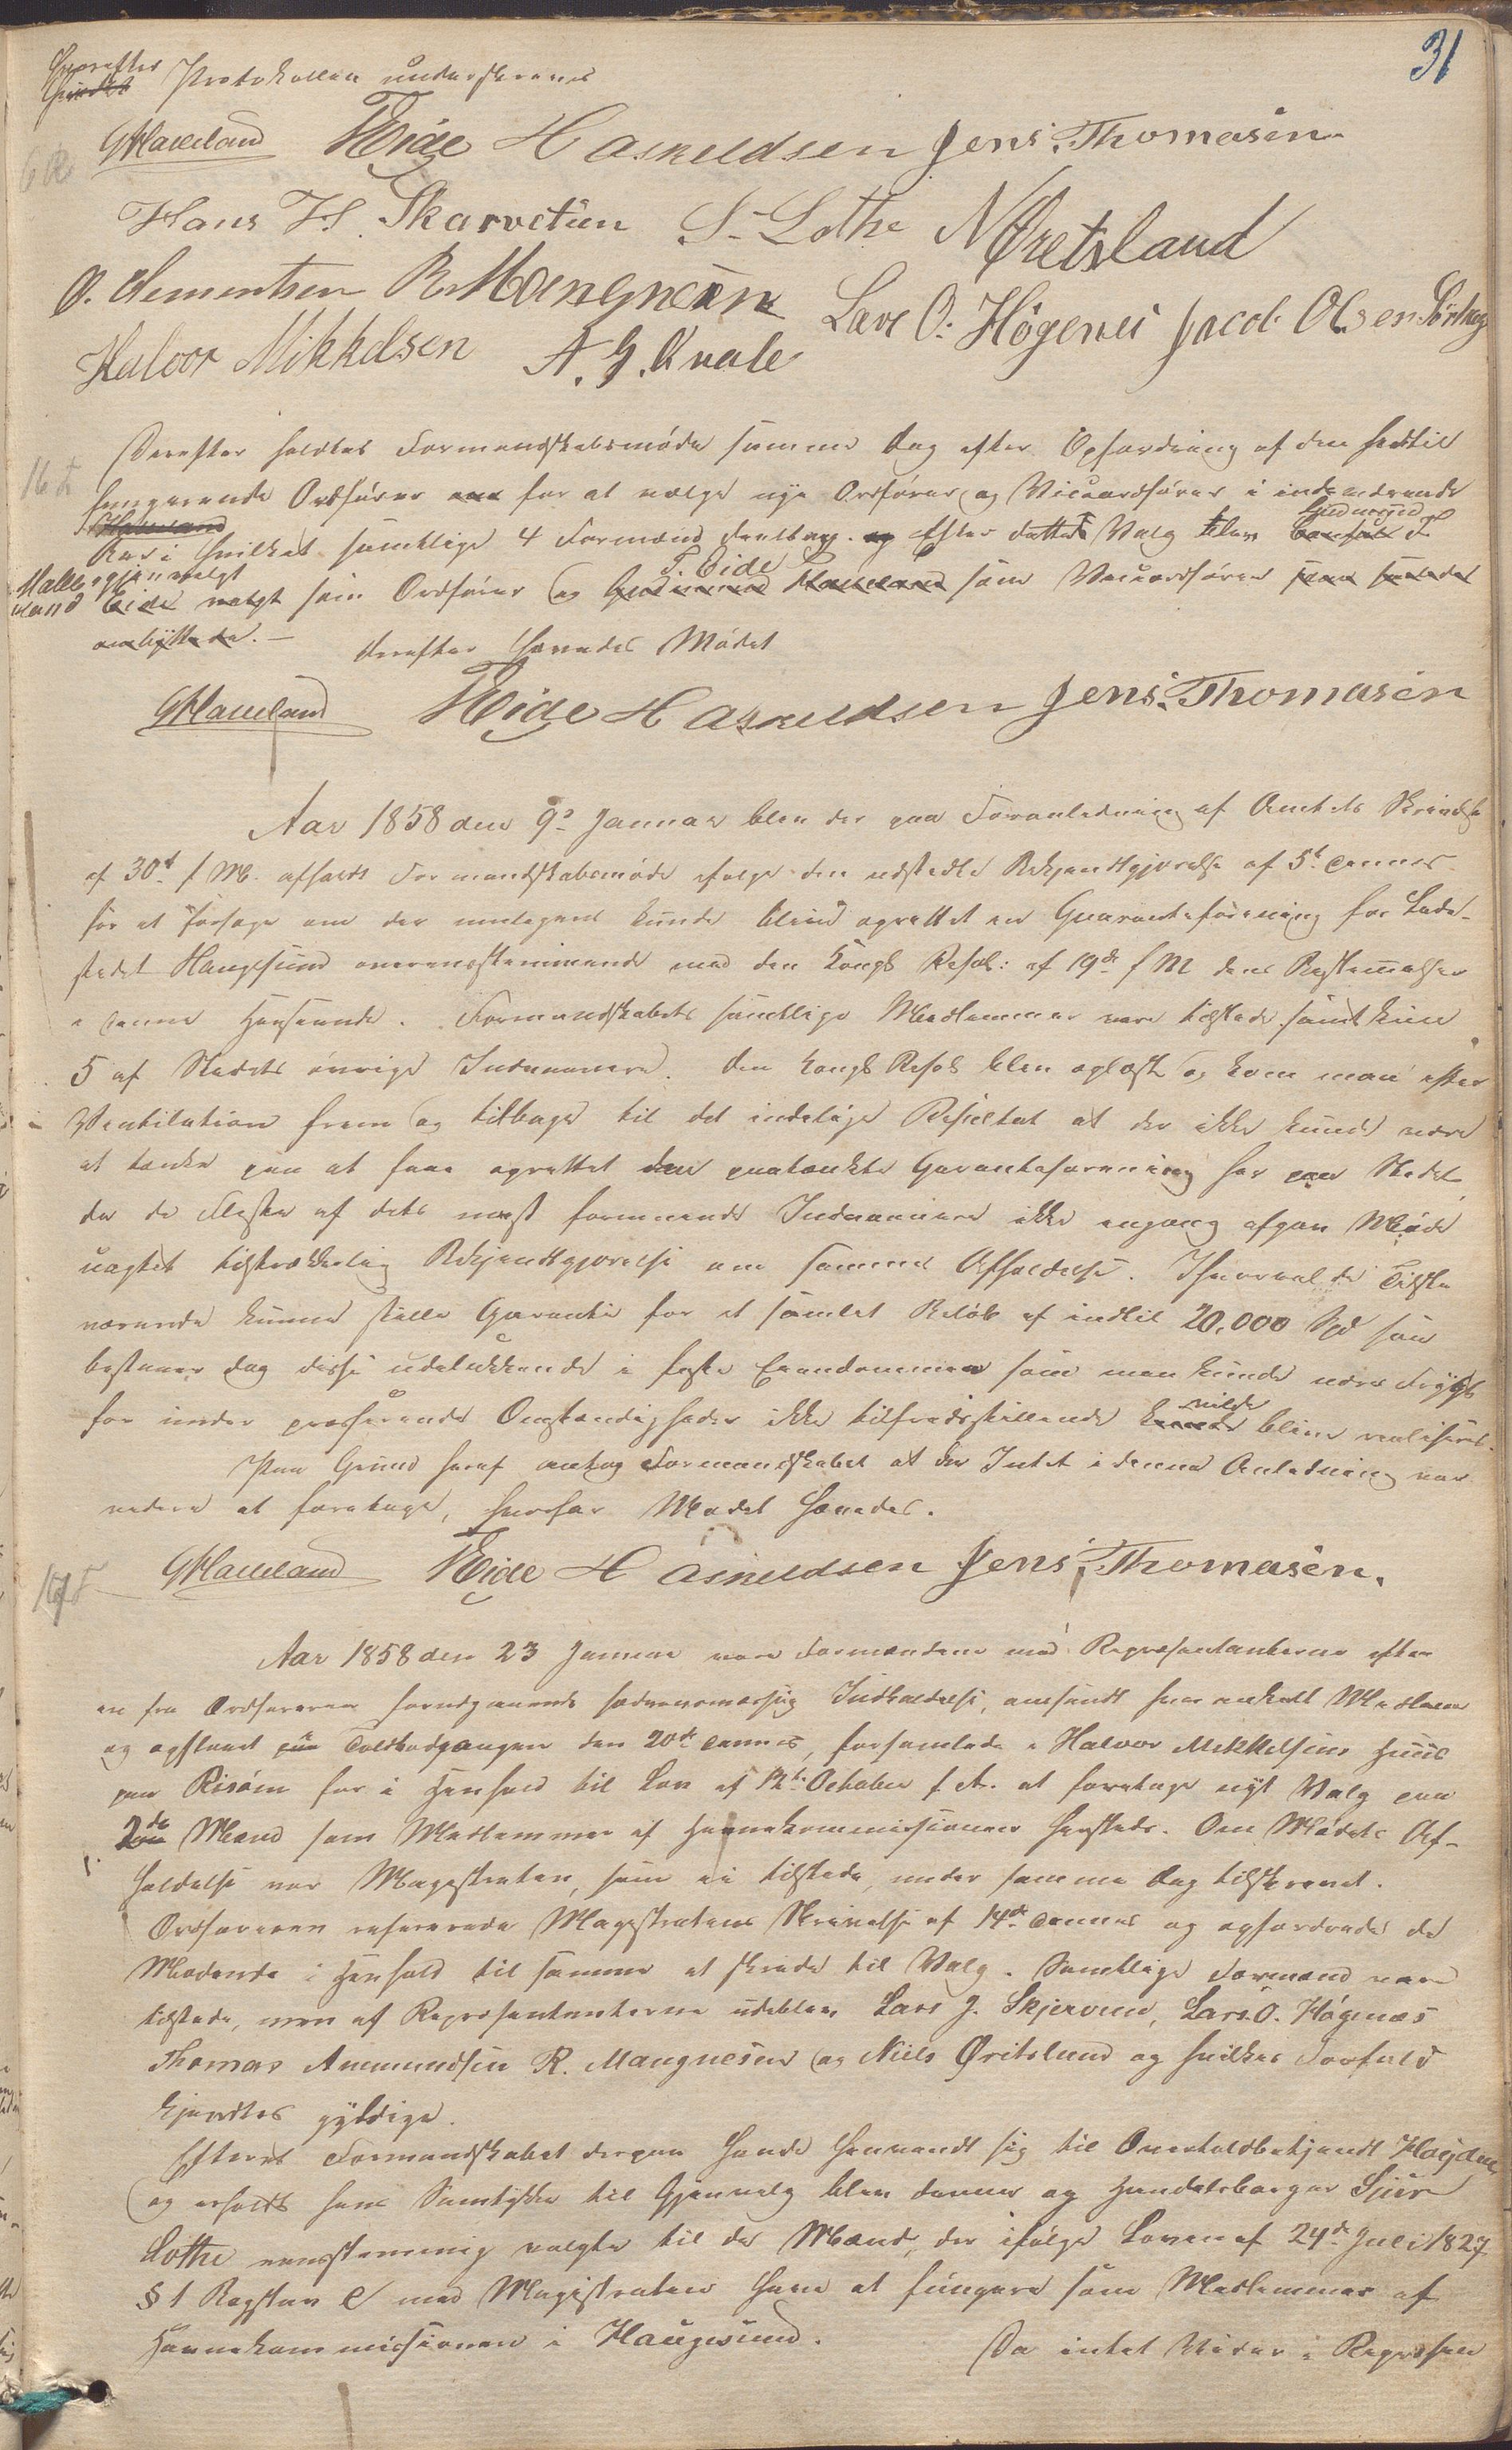 31
Hvorefter Protokollen underskreves
G Haaeland T Eide H Asheldsen Jens Thomasen
Hans H. Skarvetun S. Lothe N Øretsland
O. Clementsen R Mangnesen Lars O. Högenes Jacob Olsen
Halvor Mikkelsen A. G. Kvale
16 F
Derefter holdtes Formandskabsmøde samme Dag efter Opfordring af den hidtil
fungerende Ordfører for at vælge nye Ordfører og Viceordfører i indeværende
Aar i hvilket samtlige 4 Formænd deeltog. og Efter dette Valg blev Gudmund
Halleland igjenvalgt som Ordfører og T. Eide som Viceordfører
ombyttede.
Derefter hævedes Mødet
G Haaeland T Eide H Asheldsen Jens Thomasen
Aar 1858 den 9d Januar blev der paa Foranledning af Amtets Skrivelse
af 30te f. M. afholdt Formandskabsmøde ifølge den udstedte Bekjendtgjørelse af 5te dennes
for at forsøge om der muligens kunde blive oprettet en Garantieforening for Lade-
stedet Haugesund overensstemmende med den Kongl. Resol: af 19de f M dens Bestemmelser
i denne Henseende. Formandskabets samtlige Medlemmer vare tilstede samt kun
5 af Stedets øvrige Indvaanere. Den Kongl. Resol. blev oplæst og kom man efter
Ventilation frem og tilbage til det endelige Resultat at der ikke kunde være
at tænke paa at faae oprettet den paatænkte Garantieforening her paa Stedet
da de Fleste af dets mest formuende Indvaanere ikke engang afgav Møde
uagtet tilstrækkelig Bekjendtgjørelse om sammes Afholdelse. Ihvorvel de Tilste-
værende kunne stille Garantie for et samlet Beløb af indtil 20,000 Spd som
bestaaer dog disse udelukkende i faste Eiendommer som man kunde nære Frygt
for under presserende Omstændigheder ikke tilfredsstillende vilde blive realiseret.
Paa Grund heraf antog Formandskabet at der Intet i denne Anledning var
videre at foretage, hvorfor Mødet hævedes.
G Haaeland T Eide H Asheldsen Jens Thomasen.
Aar 1858 den 23 Januar vare Formændene med Repræsentanterne efter
en fra Ordføreren forudgaaende sædvansmæssig Indkaldelse, omsendt hver enkelt Medlem
og opslaaet paa Toldbodgangen den 20de dennes, forsamlede i Halvor Mikkelsens Huus
paa Risöen for i Henhold til Lov af 12te October f. A. at foretage nyt Valg paa
2de Mænd som Medlemmer af Havnekommissionen hersteds. Om Mødets Af-
holdelse var Magistraten, som ei tilstede, under samme Dag tilskrevet.
Ordføreren refererede Magistratens Skrivelse af 14de dennes og opfordrede de
Mødende i Henhold til samme at skride til Valg. Samtlige Formænd vare
tilstede, men af Repræsentanterne udebleve Lars J. Skjerven, Lars O. Högenæs
Thomas Ammundsen R. Mangnesen og Niels Øritsland og hvilkes Forfald
kjendtes gyldige.
Efterat Formandskabet derpaa havde henvendt sig til Overtoldbetjendt
og erholdt hans Samtykke til Gjenvalg blev denne og Handelsborger Sjur
Lothe eenstemmig valgte til de Mænd, der ifølge Loven af 24de Juli 1827
§ 1 Bogstav e med Magistraten have at fungere som Medlemmer af
Havnekommissionen i Haugesund. Da intet Videre i Repræsen